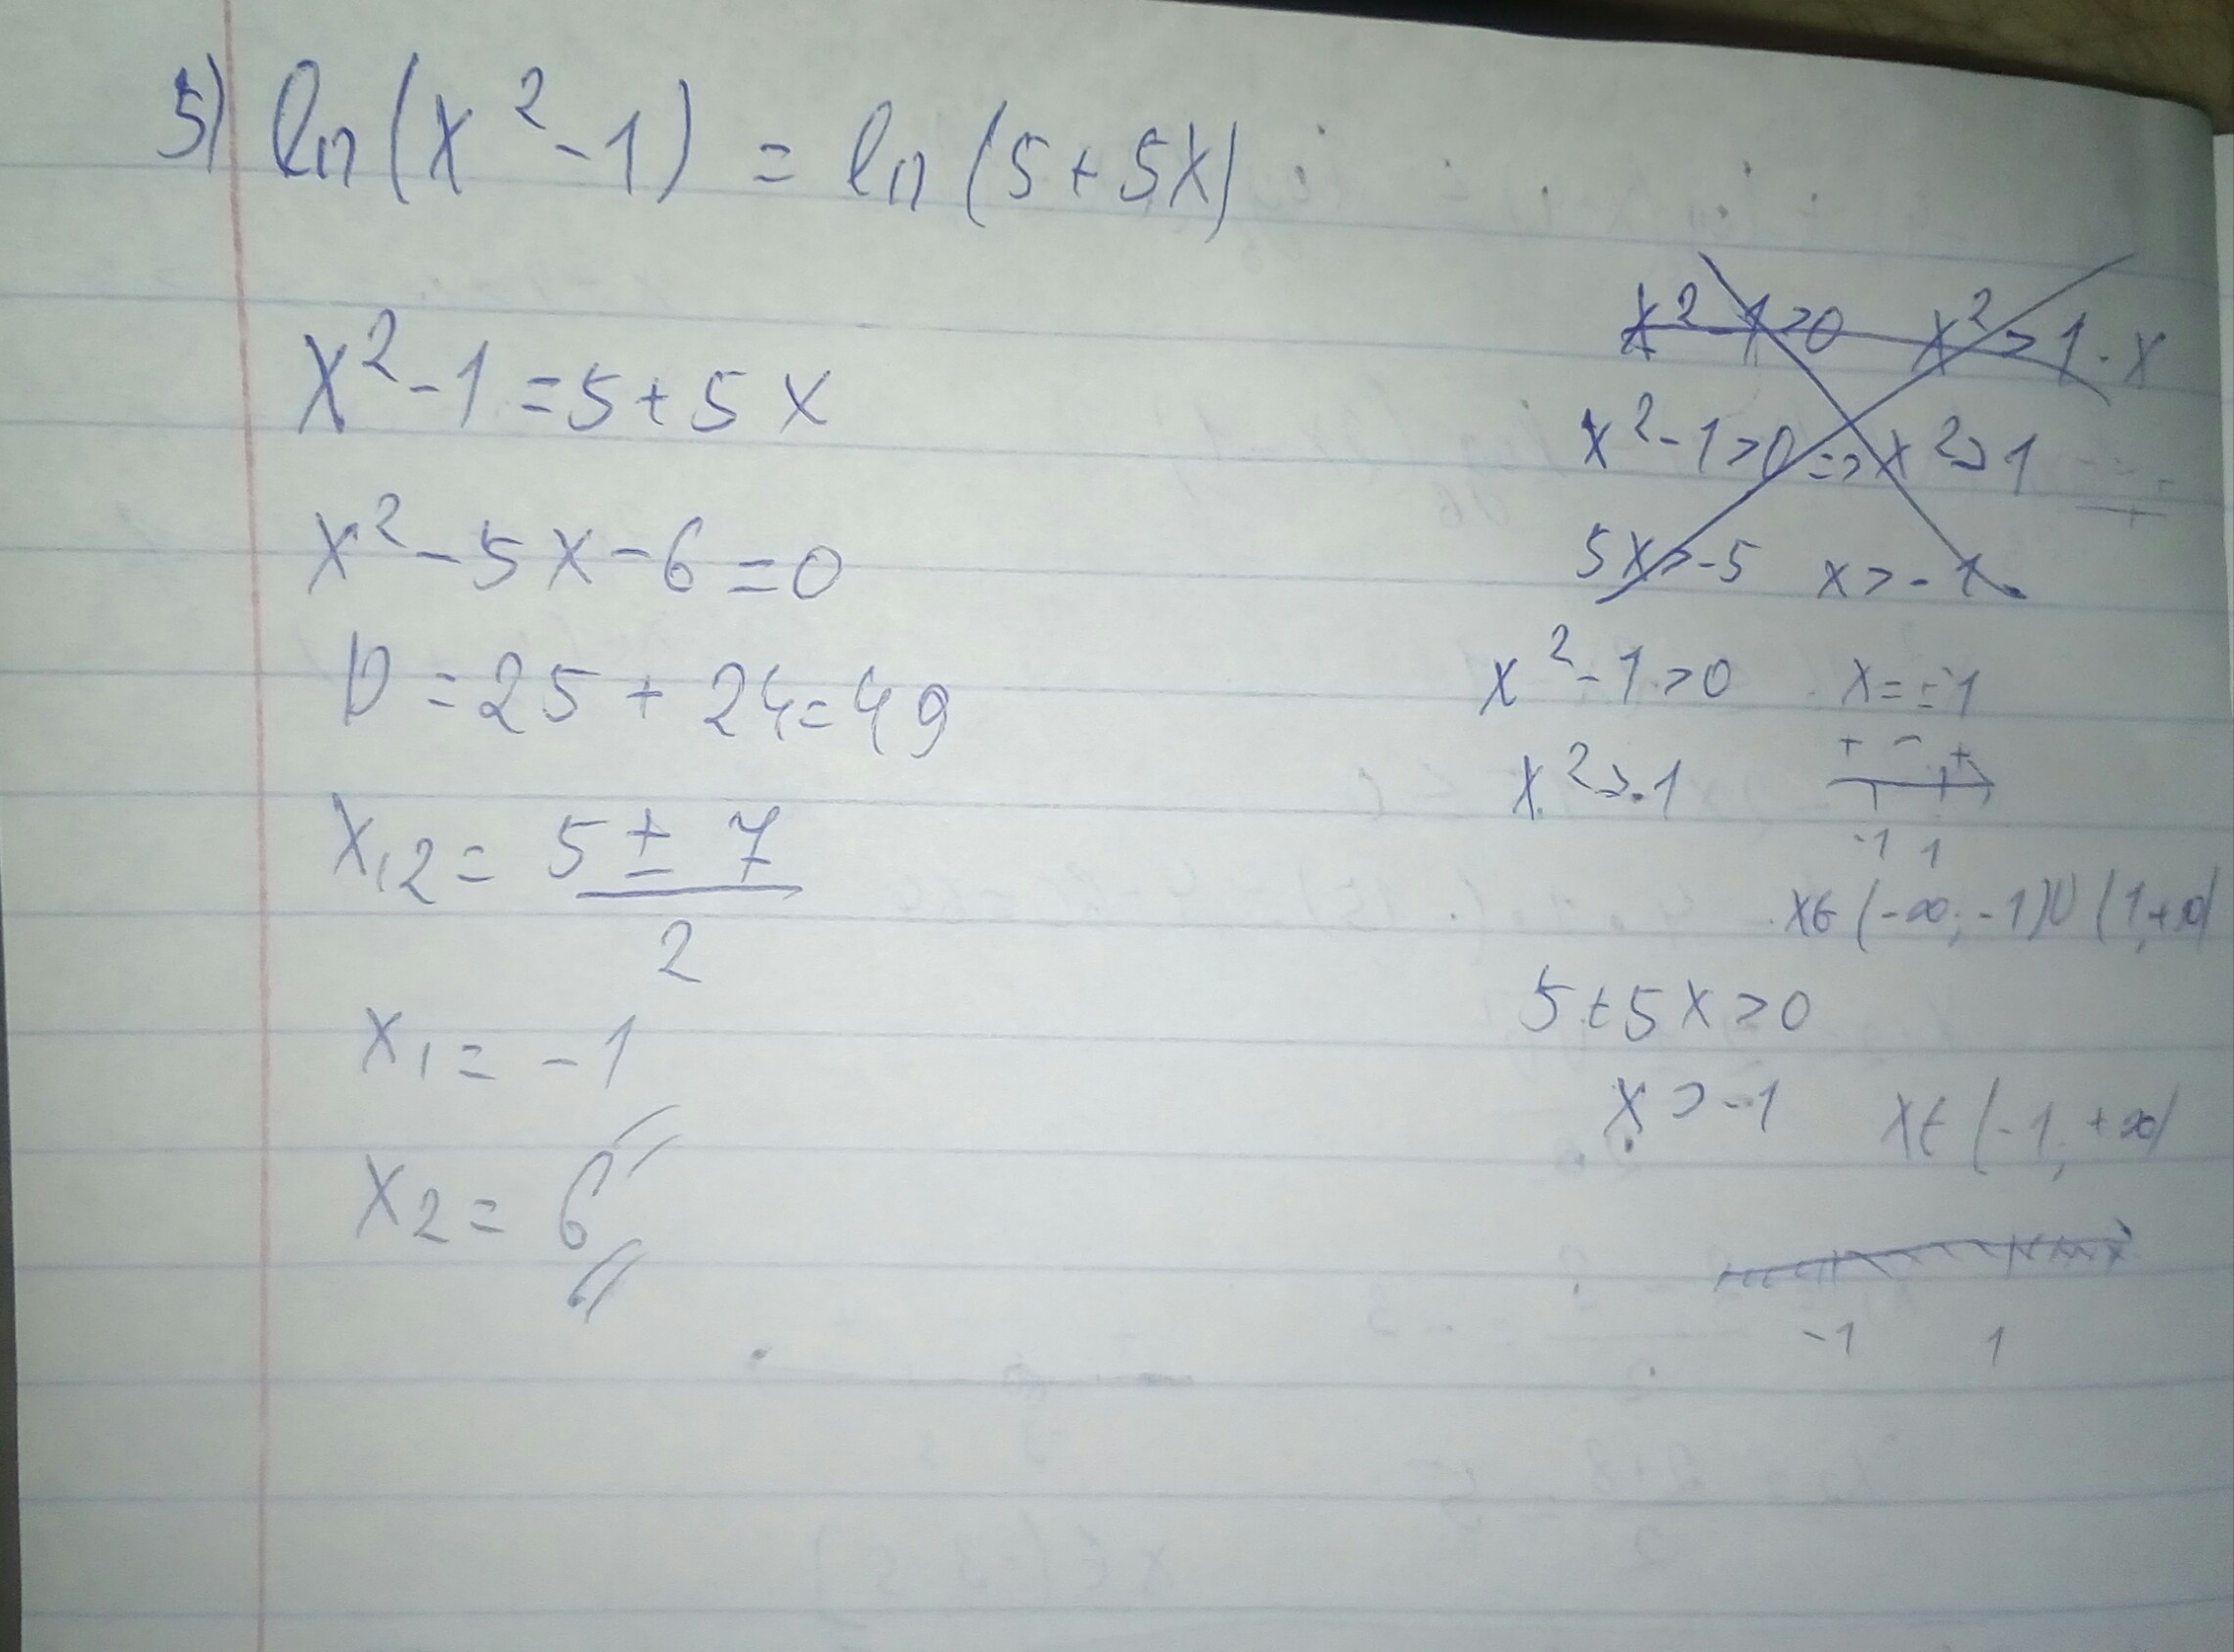 5) ln(x²-1) = ln(5+5x)
x²-1=5+5x
x²-5x-6=0
D=25+24=49
x₁,₂= 5±7
2
x₁= -1
x₂= 6
x²-1>0 x²>1
x²-1>0 => x²>1
5x>-5 x>-1
x²-1>0 x=±1
x²>1 + - +
-1 1
x∈(-∞;-1)U(1,+∞)
5+5x>0
x>-1 x∈(-1;+∞)
-1 1